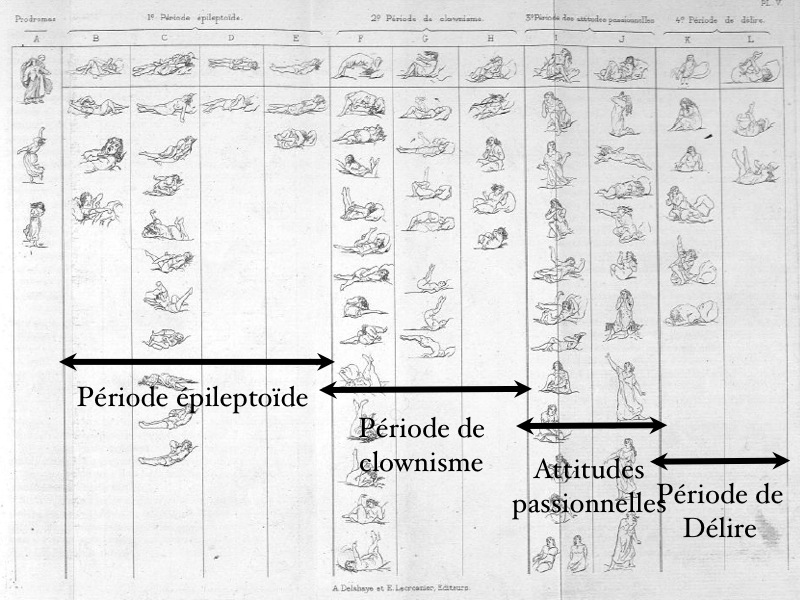 PL. V.
Prodromes
1º Période épileptoïde.
2º Période de clownisme.
3º Période des attitudes passionnelles
4º Période de délire.
A B C D E F G H I J K L
Période épileptoïde
Période de
clownisme
Attitudes
passionnelles
Période de
Délire
A Delahaye et E. Lecrosnier, Editeurs.